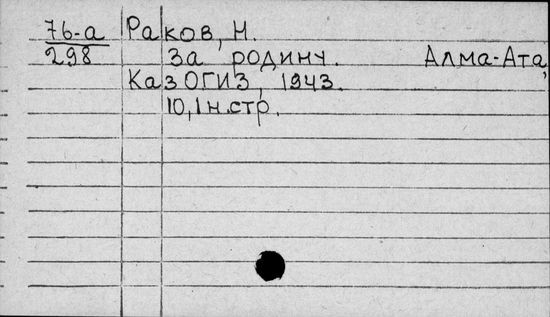 76-а Раков, Н.
298 За родину. Алма-Ата,
КазОГИЗ, 1943.
10,1 н.стр.